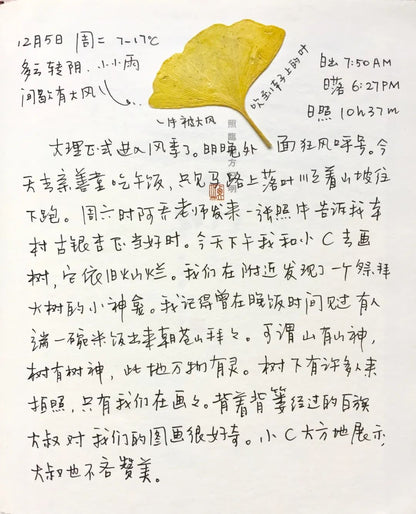 12月5日 周二 7-17℃
多云转阴. 小小雨
间歇有大风
一片被大风
吹到车子上的叶
日出 7:50 AM
日落 6:27 PM
日照 10h37m
照臨 方 明
大理正式进入风季了。明晚外面狂风呼号。今
天去亲善堂吃午饭, 只见马路上落叶顺着山坡往
下跑。周六时阿乔老师发来一张照片告诉我本
村古银杏正当好时。今天下午我和小C去画
树, 它依旧灿烂。我们在附近发现了一个祭拜
大树的小神龛。我记得曾在晚饭时间见过有人
端一碗米饭出来朝苍山拜々。可谓山有山神,
树有树神, 此地万物有灵。树下有许多人来
拍照, 只有我们在画々。背着背篓经过的白族
大叔对我们的图画很好奇。小C大方地展示,
大叔也不吝赞美。